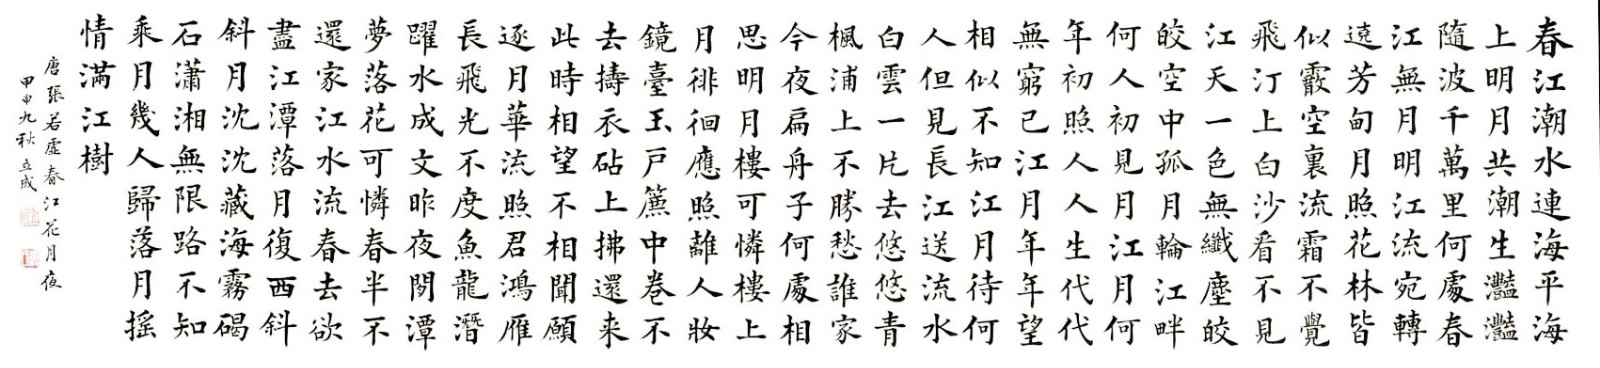 春江潮水連海平海
上明月共潮生灩灩
隨波千萬里何處春
江無月明江流宛轉
遶芳甸月照花林皆
似霰空裏流霜不覺
飛汀上白沙看不見
江天一色無纖塵皎
皎空中孤月輪江畔
何人初見月江月何
年初照人人生代代
無窮已江月年年望
相似不知江月待何
人但見長江送流水
白雲一片去悠悠青
楓浦上不勝愁誰家
今夜扁舟子何處相
思明月樓可憐樓上
月徘徊應照離人妝
鏡臺玉戶簾中卷不
去擣衣砧上拂還来
此時相望不相聞願
逐月華流照君鴻雁
長飛光不度魚龍潛
躍水成文昨夜閒潭
夢落花可憐春半不
還家江水流春去欲
盡江潭落月復西斜
斜月沈沈藏海霧碣
石瀟湘無限路不知
乘月幾人歸落月摇
情滿江樹
唐張若虛春江花月夜
甲申九秋立成